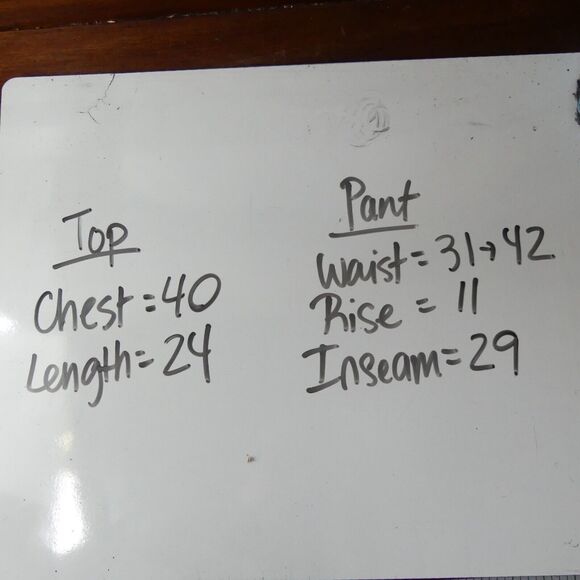 Top
Chest = 40
Length = 24
Pant
Waist = 31→42
Rise = 11
Inseam = 29